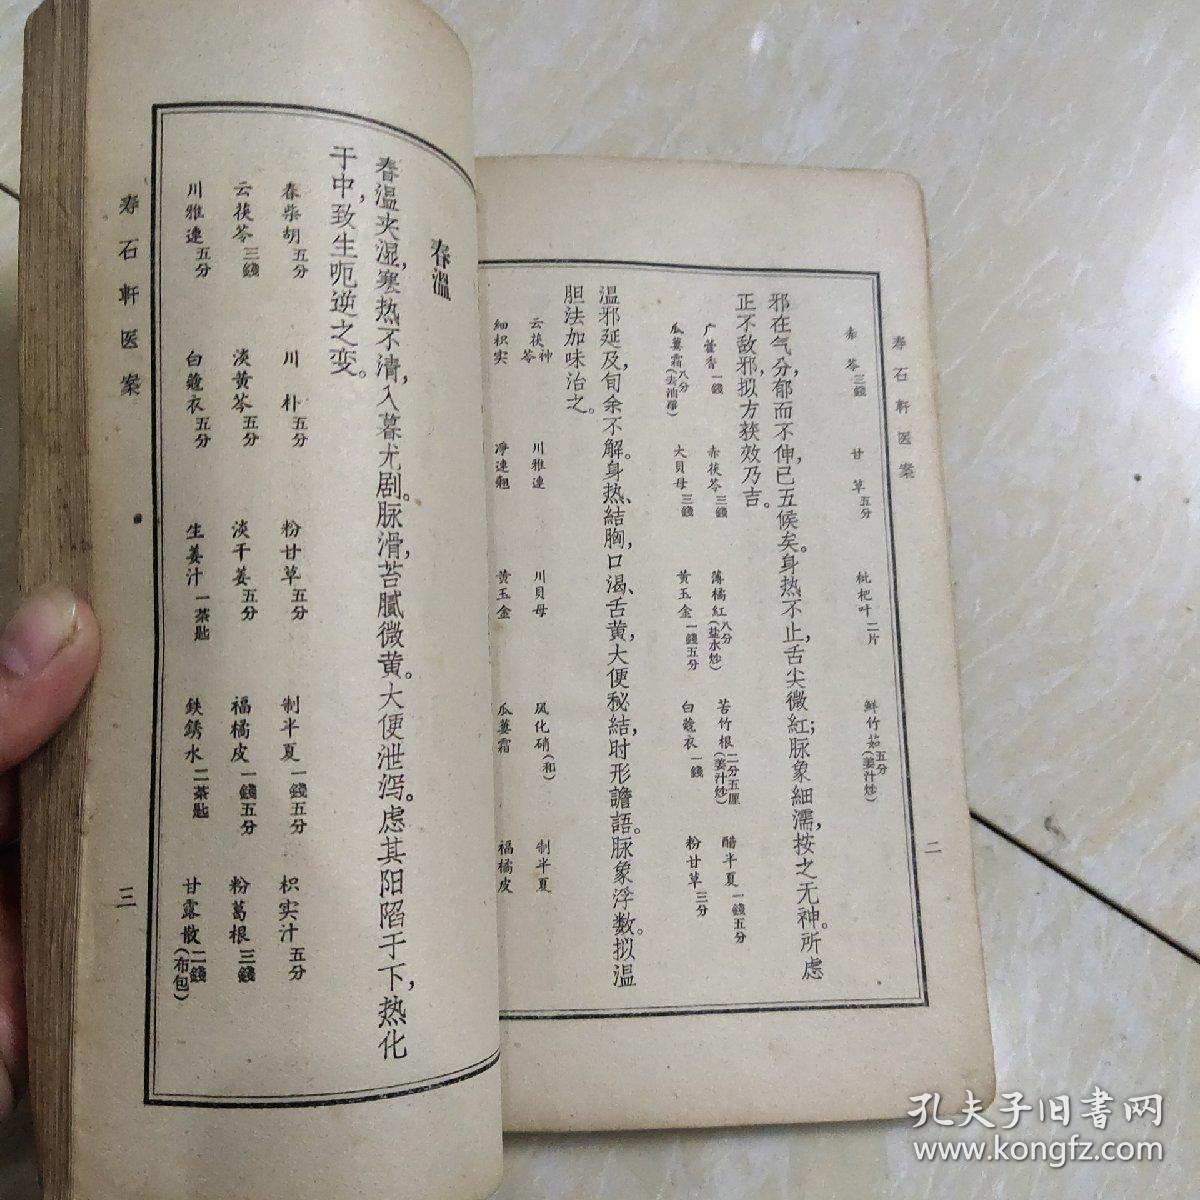 寿石軒医案
二
赤苓三錢 甘草五分 枇杷叶二片 鮮竹茹五分(姜汁炒)
邪在气分,郁而不伸,已五候矣。身热不止,舌尖微紅;脉象細濡,按之无神。所虑
正不敌邪,拟方获效乃吉。
广藿香一錢 赤茯苓三錢 薄橘紅八分(盐水炒) 苦竹根二分五厘(姜汁炒) 醋半夏一錢五分
瓜蒌霜八分(去油淨) 大貝母三錢 黄玉金一錢五分 白蔻衣一錢 粉甘草三分
温邪延及旬余不解。身热、結胸,口渴、舌黄,大便秘結,时形譫語。脉象浮数。拟温
胆法加味治之。
云茯神苓 川雅連 川貝母 风化硝(和) 制半夏
細枳实 净連翘 黄玉金 瓜蒌霜 福橘皮
春溫
春溫夹湿,寒热不清,入暮尤剧。脉滑,苔膩微黄。大便泄泻。虑其阳陷于下,热化
于中,致生呃逆之变。
春柴胡五分 川朴五分 粉甘草五分 制半夏一錢五分 枳实汁五分
云茯苓三錢 淡黄芩五分 淡干姜五分 福橘皮一錢五分 粉葛根三錢
川雅連五分 白蔻衣五分 生姜汁一茶匙 鉄銹水二茶匙 甘露散二錢(布包)
寿石軒医案
三
孔夫子旧书网
www.kongfz.com